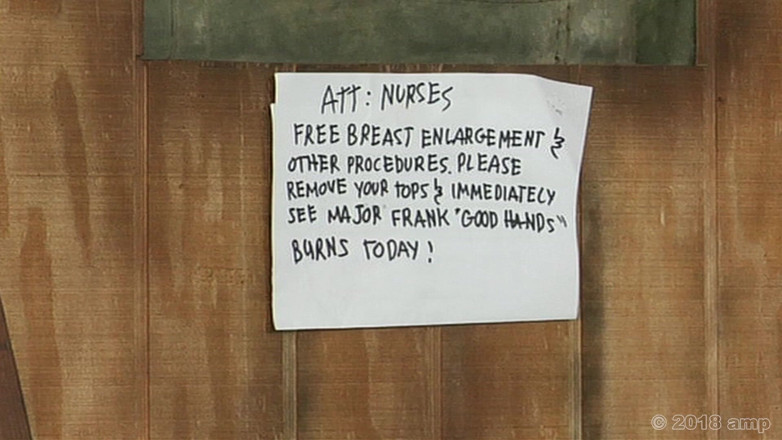 ATT: NURSES
FREE BREAST ENLARGEMENT &
OTHER PROCEDURES. PLEASE
REMOVE YOUR TOPS & IMMEDIATELY
SEE MAJOR FRANK "GOOD HANDS"
BURNS TODAY!
© 2018 amp